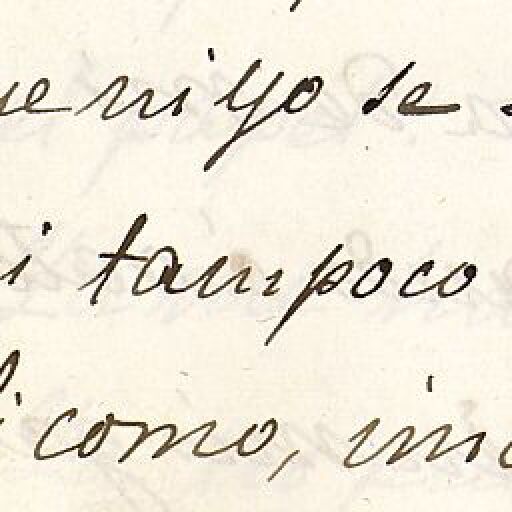 ni yo se
i tampoco
como,